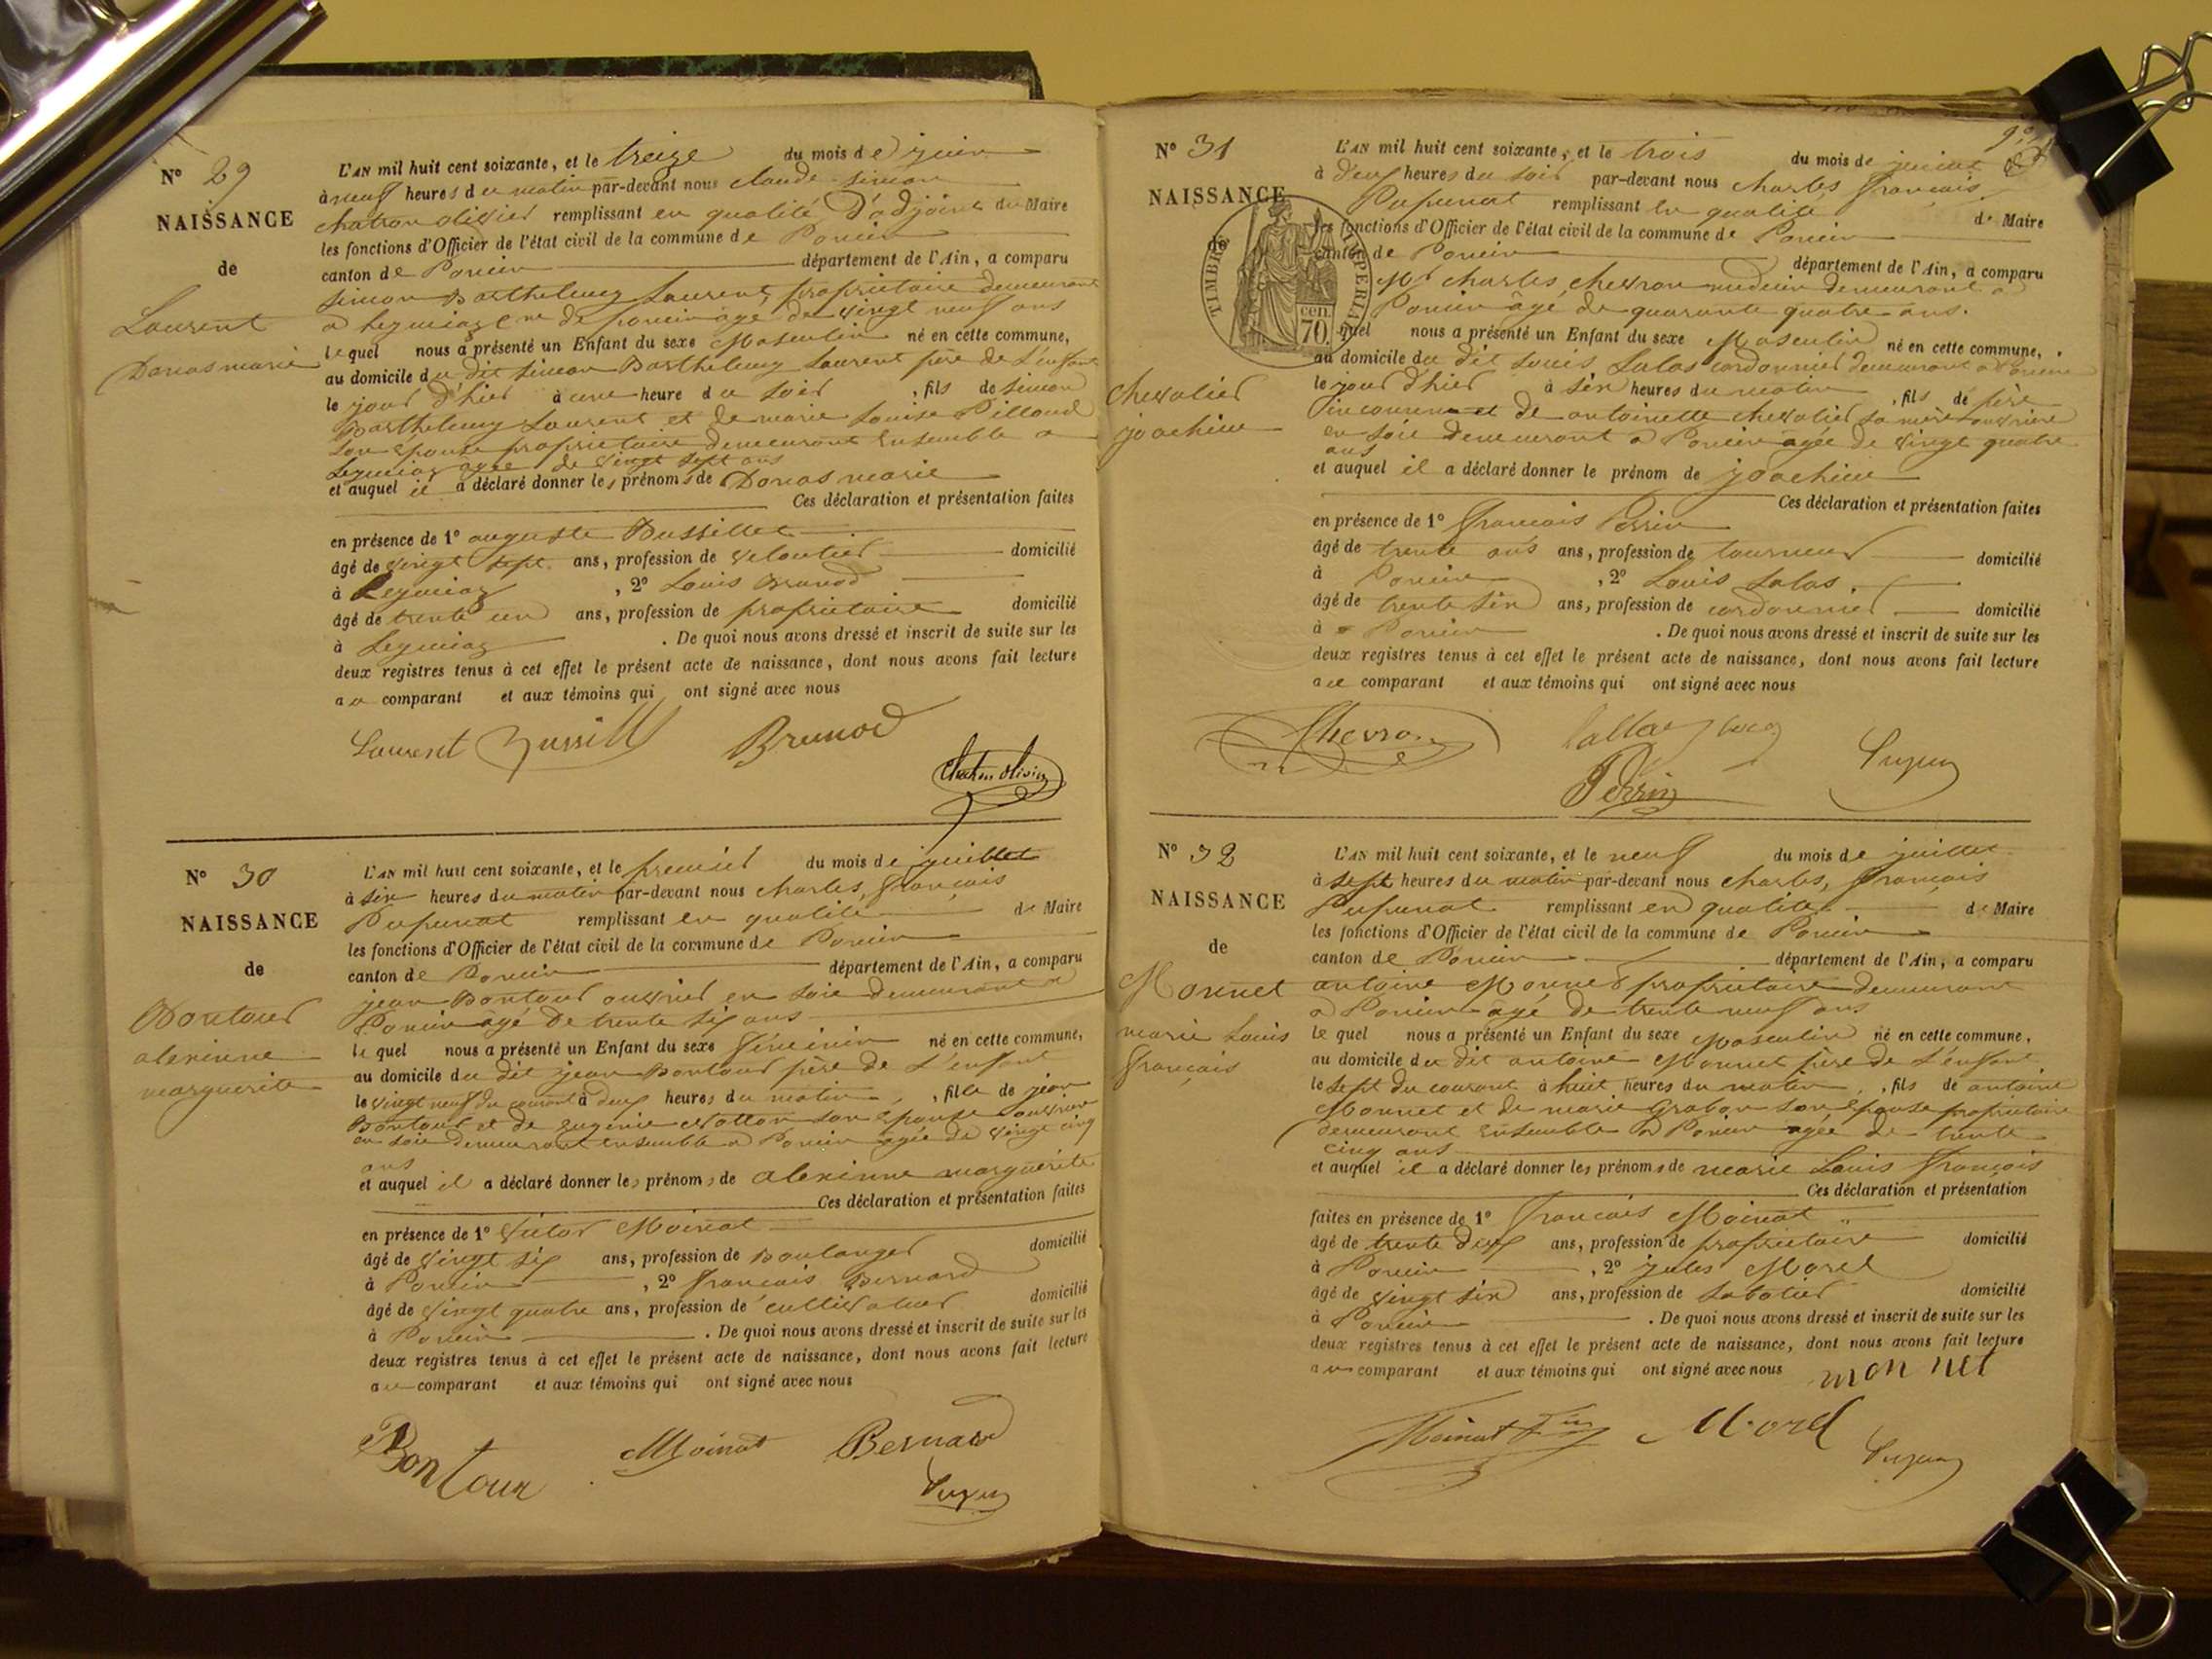 N° 29
NAISSANCE
de
Laurent
Donas marie
L'AN mil huit cent soixante, et le treize du mois de juin
à neuf heures du matin par-devant nous claude simon
chatron olivier remplissant en qualité d'adjoint du Maire
les fonctions d'Officier de l'état civil de la commune de Poncin
canton de Poncin département de l'Ain, a comparu
simon Barthelemy Laurent, propriétaire demeurant
a leymiaz cne de poncin âgé de vingt neuf ans
lequel nous a présenté un Enfant du sexe Masculin né en cette commune,
au domicile du dit simon Barthelemy Laurent père de l'enfant
le jour d'hier à une heure du soir, fils de simon
Barthelemy Laurent et de marie Louise Pilloud
son épouse propriétaire demeurant ensemble a
Leymiaz agée de vingt sept ans
et auquel il a déclaré donner les prénoms de Donas marie
Ces déclaration et présentation faites
en présence de 1° auguste Bussillet
âgé de vingt sept ans, profession de veloutier domicilié
à Leymiaz, 2° Louis Brunod
âgé de trente un ans, profession de propriétaire domicilié
à Leymiaz. De quoi nous avons dressé et inscrit de suite sur les
deux registres tenus à cet effet le présent acte de naissance, dont nous avons fait lecture
au comparant et aux témoins qui ont signé avec nous
Laurent Bussillet Brunod
Chatron olivier
N° 30
NAISSANCE
de
Bontour
alexinne
marguerite
L'AN mil huit cent soixante, et le premier du mois de juillet
à six heures du matin par-devant nous charles, françois
Pupunat remplissant en qualité de Maire
les fonctions d'Officier de l'état civil de la commune de Poncin
canton de Poncin département de l'Ain, a comparu
jean Bontour ouvrier en soie demeurant a
Poncin âgé de trente six ans
lequel nous a présenté un Enfant du sexe féminin né en cette commune,
au domicile du dit jean Bontour père de l'enfant
le vingt neuf du courant à deux heures du matin, fille de jean
Bontour et de eugénie son épouse ouvrière
en soie demeurant ensemble a Poncin agée de vingt cinq
ans
et auquel il a déclaré donner les prénoms de alexinne marguerite
Ces déclaration et présentation faites
en présence de 1° Victor Moinat
âgé de vingt six ans, profession de Boulanger domicilié
à Poncin, 2° françois Bernard
âgé de vingt quatre ans, profession de cultivateur domicilié
à Poncin. De quoi nous avons dressé et inscrit de suite sur les
deux registres tenus à cet effet le présent acte de naissance, dont nous avons fait lecture
au comparant et aux témoins qui ont signé avec nous
Bontour Moinat Bernard
N° 31
NAISSANCE
de
chevalier
joachim
TIMBRE IMPERIAL
70 cen.
L'AN mil huit cent soixante, et le trois du mois de juillet
à deux heures du soir par-devant nous charles françois
Pupunat remplissant en qualité de Maire
les fonctions d'Officier de l'état civil de la commune de Poncin
canton de Poncin département de l'Ain, a comparu
Mr charles, chevron médecin demeurant a
Poncin âgé de quarante quatre ans.
quel nous a présenté un Enfant du sexe Masculin né en cette commune,
au domicile du dit Louis Lalas cordonnier demeurant a Poncin
le jour d'hier à six heures du matin, fils de père
inconnu et de antoinette chevalier sa mère ouvrière
en soie demeurant a Poncin agée de vingt quatre
ans
et auquel il a déclaré donner le prénom de joachim
Ces déclaration et présentation faites
en présence de 1° françois Perrin
âgé de trente ans ans, profession de tourneur domicilié
à Poncin, 2° Louis Lalas
âgé de trente six ans, profession de cordonnier domicilié
à Poncin. De quoi nous avons dressé et inscrit de suite sur les
deux registres tenus à cet effet le présent acte de naissance, dont nous avons fait lecture
au comparant et aux témoins qui ont signé avec nous
Chevron
Perrin
N° 32
NAISSANCE
de
Monnet
marie Louis
françois
L'AN mil huit cent soixante, et le neuf du mois de juillet
à sept heures du matin par-devant nous charles, françois
Pupunat remplissant en qualité de Maire
les fonctions d'Officier de l'état civil de la commune de Poncin
canton de Poncin département de l'Ain, a comparu
antoine Monnet propriétaire demeurant
a Poncin âgé de trente neuf ans
lequel nous a présenté un Enfant du sexe Masculin né en cette commune,
au domicile du dit antoine Monnet père de l'enfant
le sept du courant à huit heures du matin, fils de antoine
Monnet et de marie Grabon son épouse propriétaire
demeurant ensemble a Poncin agée de trente
cinq ans
et auquel il a déclaré donner les prénoms de marie Louis françois
Ces déclaration et présentation
faites en présence de 1° françois Moinat
âgé de trente deux ans, profession de propriétaire domicilié
à Poncin, 2° jules Morel
âgé de vingt six ans, profession de sabotier domicilié
à Poncin. De quoi nous avons dressé et inscrit de suite sur les
deux registres tenus à cet effet le présent acte de naissance, dont nous avons fait lecture
au comparant et aux témoins qui ont signé avec nous monnet
Moinat Morel